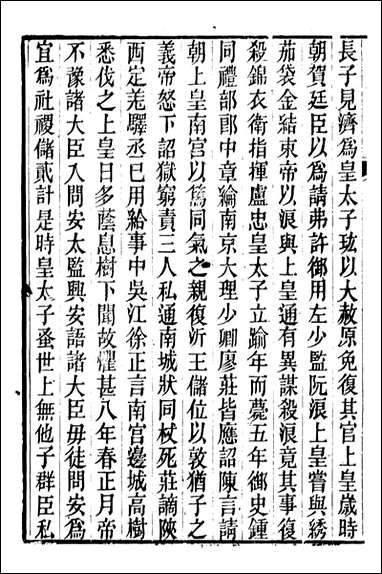 長子見濟爲皇太子玹以大赦原免復其官上皇歲時
朝賀廷臣以爲請弗許御用左少監阮浪上皇嘗與綉
茄袋金結束帝以浪與上皇通有異謀殺浪竟其事復
殺錦衣衛指揮盧忠皇太子立踰年而薨五年御史鍾
同禮部郎中章綸南京大理少卿廖莊皆應詔陳言請
朝上皇南宮以篤同氣之親復沂王儲位以敦猶子之
義帝怒下詔獄窮責三人私通南城狀同杖死莊謫陝
西定羌驛丞已用給事中吳江徐正言南宮邊城高樹
悉伐之上皇日多蔭息樹下聞故懼甚八年春正月帝
不豫諸大臣入問安太監興安語諸大臣毋徒問安爲
宜爲社稷儲貳計是時皇太子蚤世上無他子群臣私